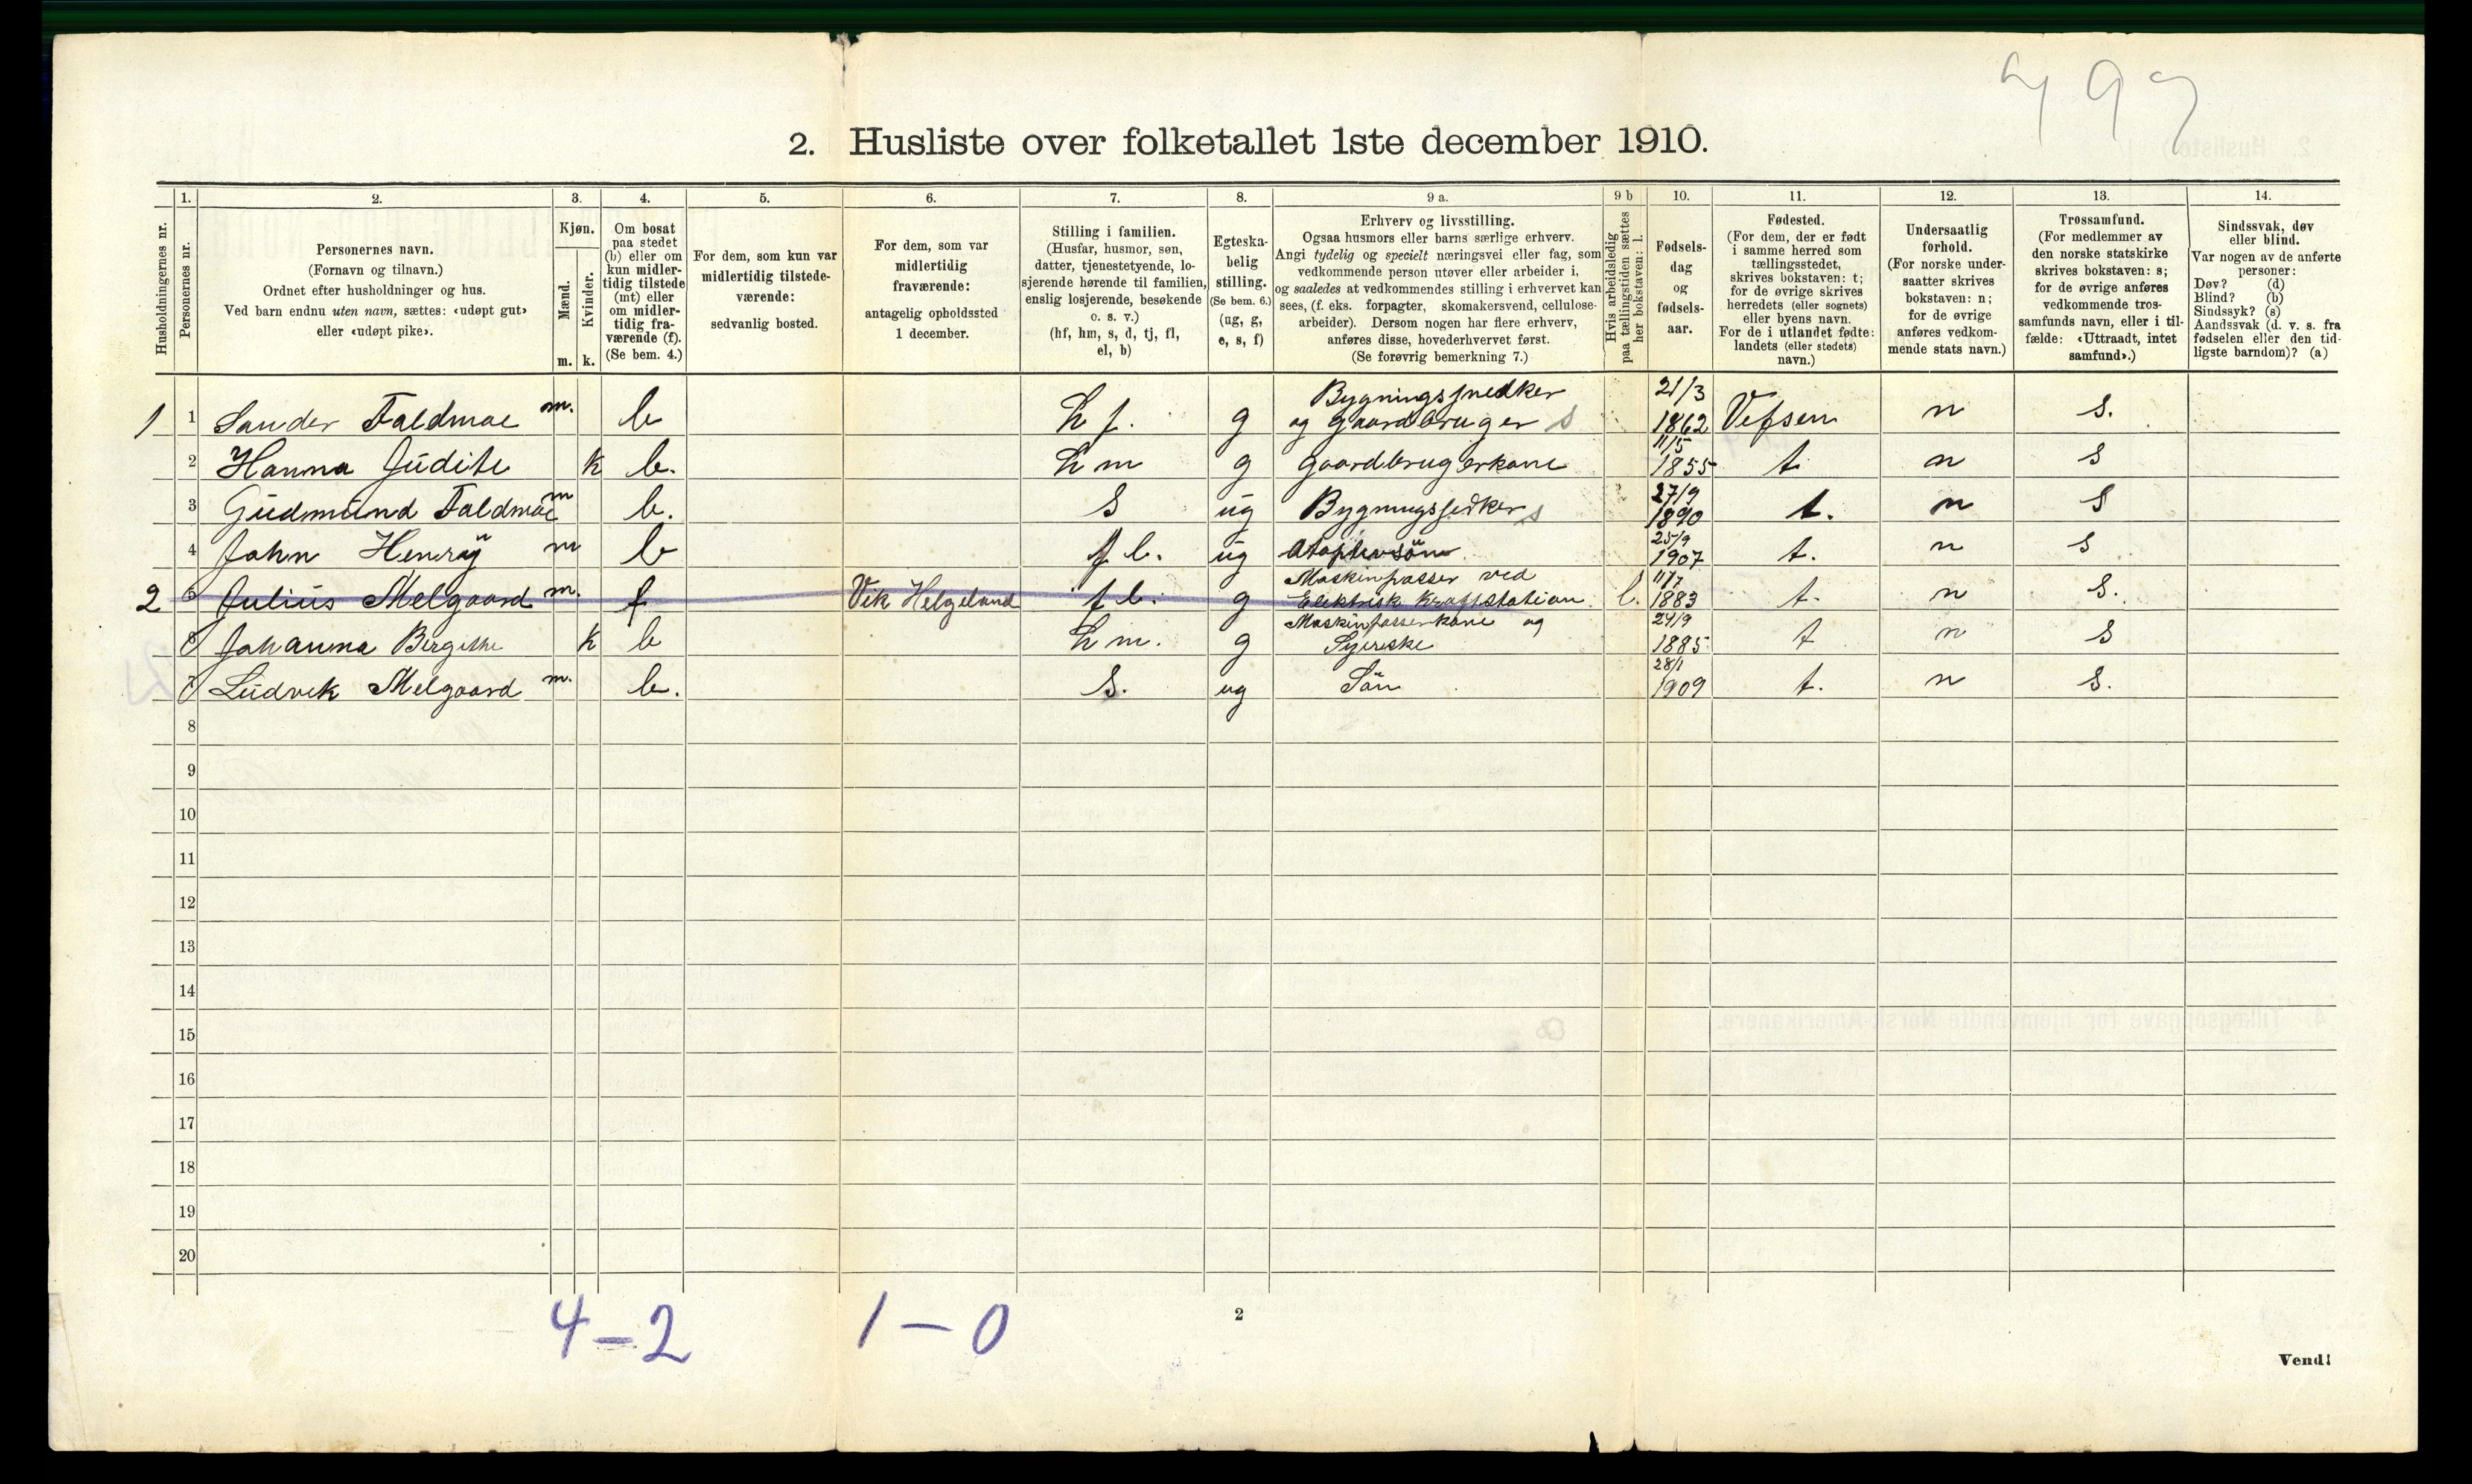 2. Husliste over folketallet 1ste december 1910.
Husholdningernes nr.
1.
Personernes nr.
2.
Personernes navn.
(Fornavn og tilnavn.)
Ordnet efter husholdninger og hus.
Ved barn endnu uten navn, sættes: «udøpt gut»
eller «udøpt pike».
3.
Kjøn.
Mænd.
Kvinder.
m. k.
4.
Om bosat
paa stedet
(b) eller om
kun midler-
tidig tilstede
(mt) eller
om midler-
tidig fra-
værende (f).
(Se bem. 4.)
5.
For dem, som kun var
midlertidig tilstede-
værende:
sedvanlig bosted.
6.
For dem, som var
midlertidig
fraværende:
antagelig opholdssted
1 december.
7.
Stilling i familien.
(Husfar, husmor, søn,
datter, tjenestetyende, lo-
sjerende hørende til familien,
enslig losjerende, besøkende
o. s. v.)
(hf, hm, s, d, tj, fl,
el, b)
8.
Egteska-
belig
stilling.
(Se bem. 6.)
(ug, g,
e, s, f)
9 a.
Erhverv og livsstilling.
Ogsaa husmors eller barns særlige erhverv.
Angi tydelig og specielt næringsvei eller fag, som
vedkommende person utøver eller arbeider i,
og saaledes at vedkommendes stilling i erhvervet kan
sees, (f. eks. forpagter, skomakersvend, cellulose-
arbeider). Dersom nogen har flere erhverv,
anføres disse, hovederhvervet først.
(Se forøvrig bemerkning 7.)
9 b
Hvis arbeidsledig
paa tællingstiden sættes
her bokstaven: l.
10.
Fødsels-
dag
og
fødsels-
aar.
11.
Fødested.
(For dem, der er født
i samme herred som
tællingsstedet,
skrives bokstaven: t;
for de øvrige skrives
herredets (eller sognets)
eller byens navn.
For de i utlandet fødte:
landets (eller stedets)
navn.)
12.
Undersaatlig
forhold.
(For norske under-
saatter skrives
bokstaven: n;
for de øvrige
anføres vedkom-
mende stats navn.)
13.
Trossamfund.
(For medlemmer av
den norske statskirke
skrives bokstaven: s;
for de øvrige anføres
vedkommende tros-
samfunds navn, eller i til-
fælde: «Uttraadt, intet
samfund».)
14.
Sindssvak, døv
eller blind.
Var nogen av de anførte
personer:
Døv? (d)
Blind? (b)
Sindssyk? (s)
Aandssvak (d. v. s. fra
fødselen eller den tid-
ligste barndom)? (a)
Bygningssnedker 21/3
1 1 Sander Faldmoe m. b hf. g og gaardbruger s 1862 Vefsen n s.
11/5
2 Hanna Judite k b. hm g gaardbrugerkone 1855 t n s
27/9
3 Gudmund Faldmoe m b. s ug s 1890 t. n s
25/9
4 John Henry m b fl. ug 1907 t. n s
Maskinpasser ved 11/7
2 5 Julius Melgaard m. f Vik Helgeland fl. g Elektrisk Kraftstation. l. 1883 t. n s.
Maskinpasserkone og 24/9
6 Johanna Birgithe k b hm. g Syerske 1885 t n s
28/1
7 Ludvik Melgaard m. b. s. ug Sön 1909 t. n s.
8
9
10
11
12
13
14
15
16
17
18
19
20
4 – 2 1 – 0
2
Vend!